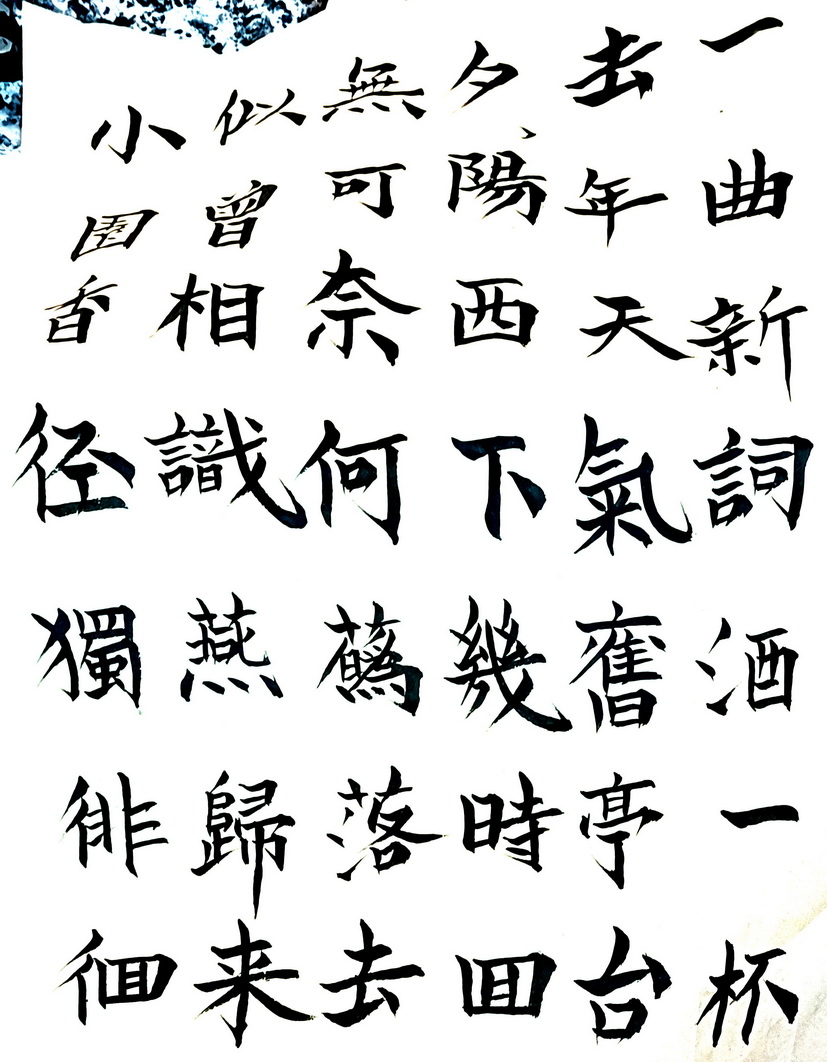 一曲新詞酒一杯
去年天氣舊亭台
夕陽西下幾時囬
無可奈何蘤落去
似曾相識燕歸来
小園香径獨徘徊